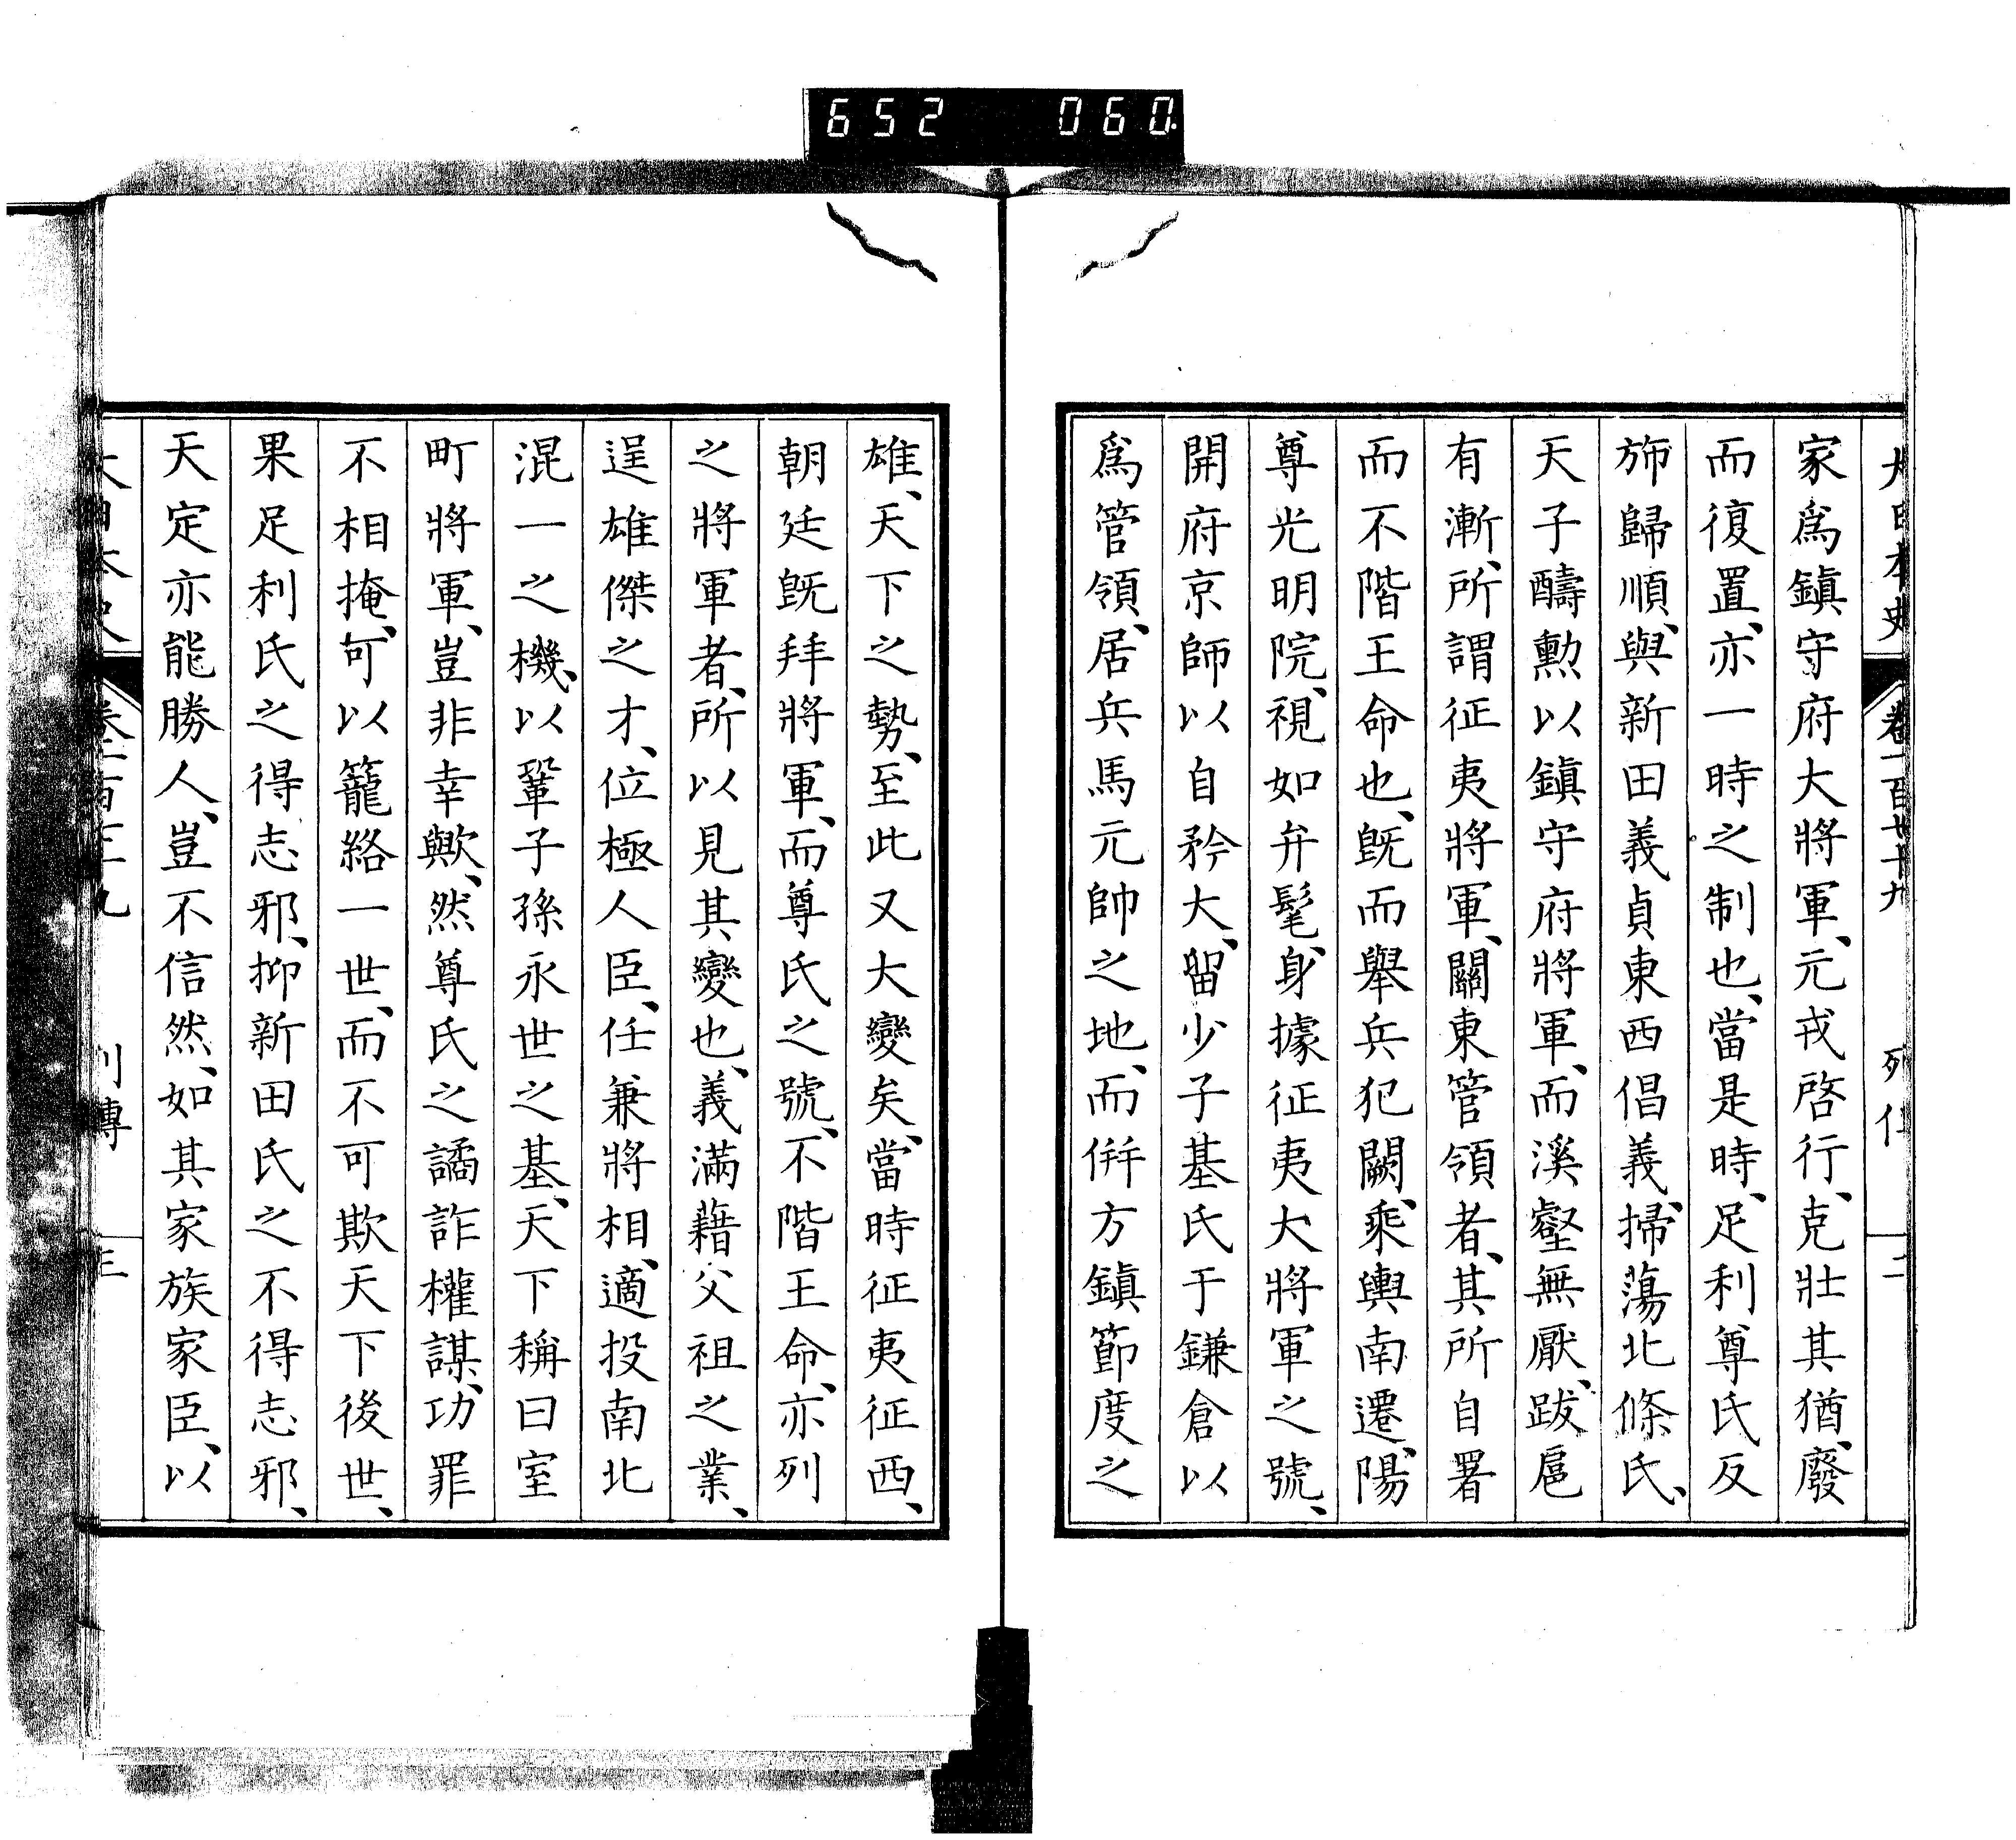 652 060
大日本史 卷一百七十九 列傳 二
家爲鎮守府大將軍、元戎啓行、克壯其猶、廢
而復置、亦一時之制也、當是時、足利尊氏反
斾歸順、與新田義貞東西倡義、掃蕩北條氏、
天子醻勳以鎮守府將軍、而溪壑無厭、跋扈
有漸、所謂征夷將軍、關東管領者、其所自署
而不階王命也、旣而舉兵犯闕、乘輿南遷、陽
尊光明院、視如弁髦、身據征夷大將軍之號、
開府京師以自矜大、留少子基氏于鎌倉以
爲管領、居兵馬元帥之地、而倂方鎮節度之
雄、天下之勢、至此又大變矣、當時征夷征西、
朝廷旣拜將軍、而尊氏之號、不階王命、亦列
之將軍者、所以見其變也、義滿藉父祖之業、
逞雄傑之才、位極人臣、任兼將相、適投南北
混一之機、以鞏子孫永世之基、天下稱曰室
町將軍、豈非幸歟、然尊氏之譎詐權謀、功罪
不相掩、可以籠絡一世、而不可欺天下後世、
果足利氏之得志邪、抑新田氏之不得志邪、
天定亦能勝人、豈不信然、如其家族家臣、以
大日本史 卷一百七十九 列傳 三